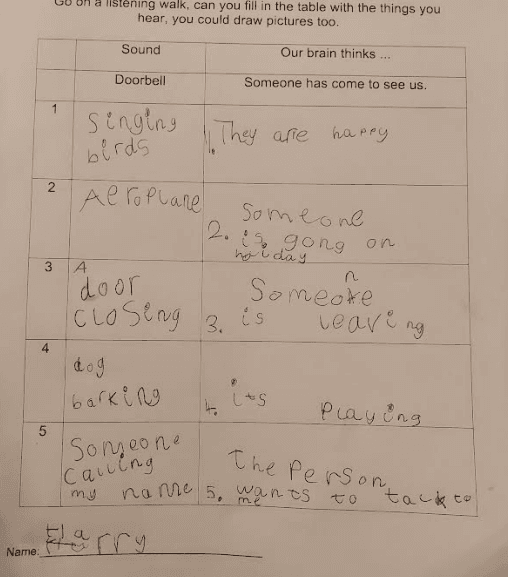 Go on a listening walk, can you fill in the table with the things you
hear, you could draw pictures too.
Sound Our brain thinks ...
Doorbell Someone has come to see us.
1 Singing
birds
1. They are happy
2 Aeroplane
Someone
2. is gong on
holiday
3 A
door
closing
Someone
3. is leaving
4 dog
barking
4. its playing
5 Someone
calling
my name
The person
5. wants to talk to
me
Name: Harry